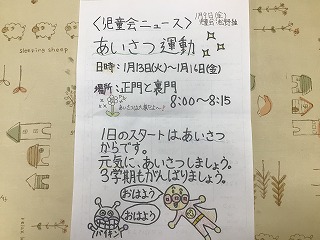 〈児童会ニュース〉
1月8日(金)
あいさつ運動
日時:1月13日(火)〜1月16日(金)
場所:正門と裏門
8:00〜8:15
あいさつは大事だよ〜!
1日のスタートは、あいさつ
からです。
元気に、あいさつしましょう。
3学期もがんばりましょう。
おはよう
おはよう
バイキン
sleeping sheep